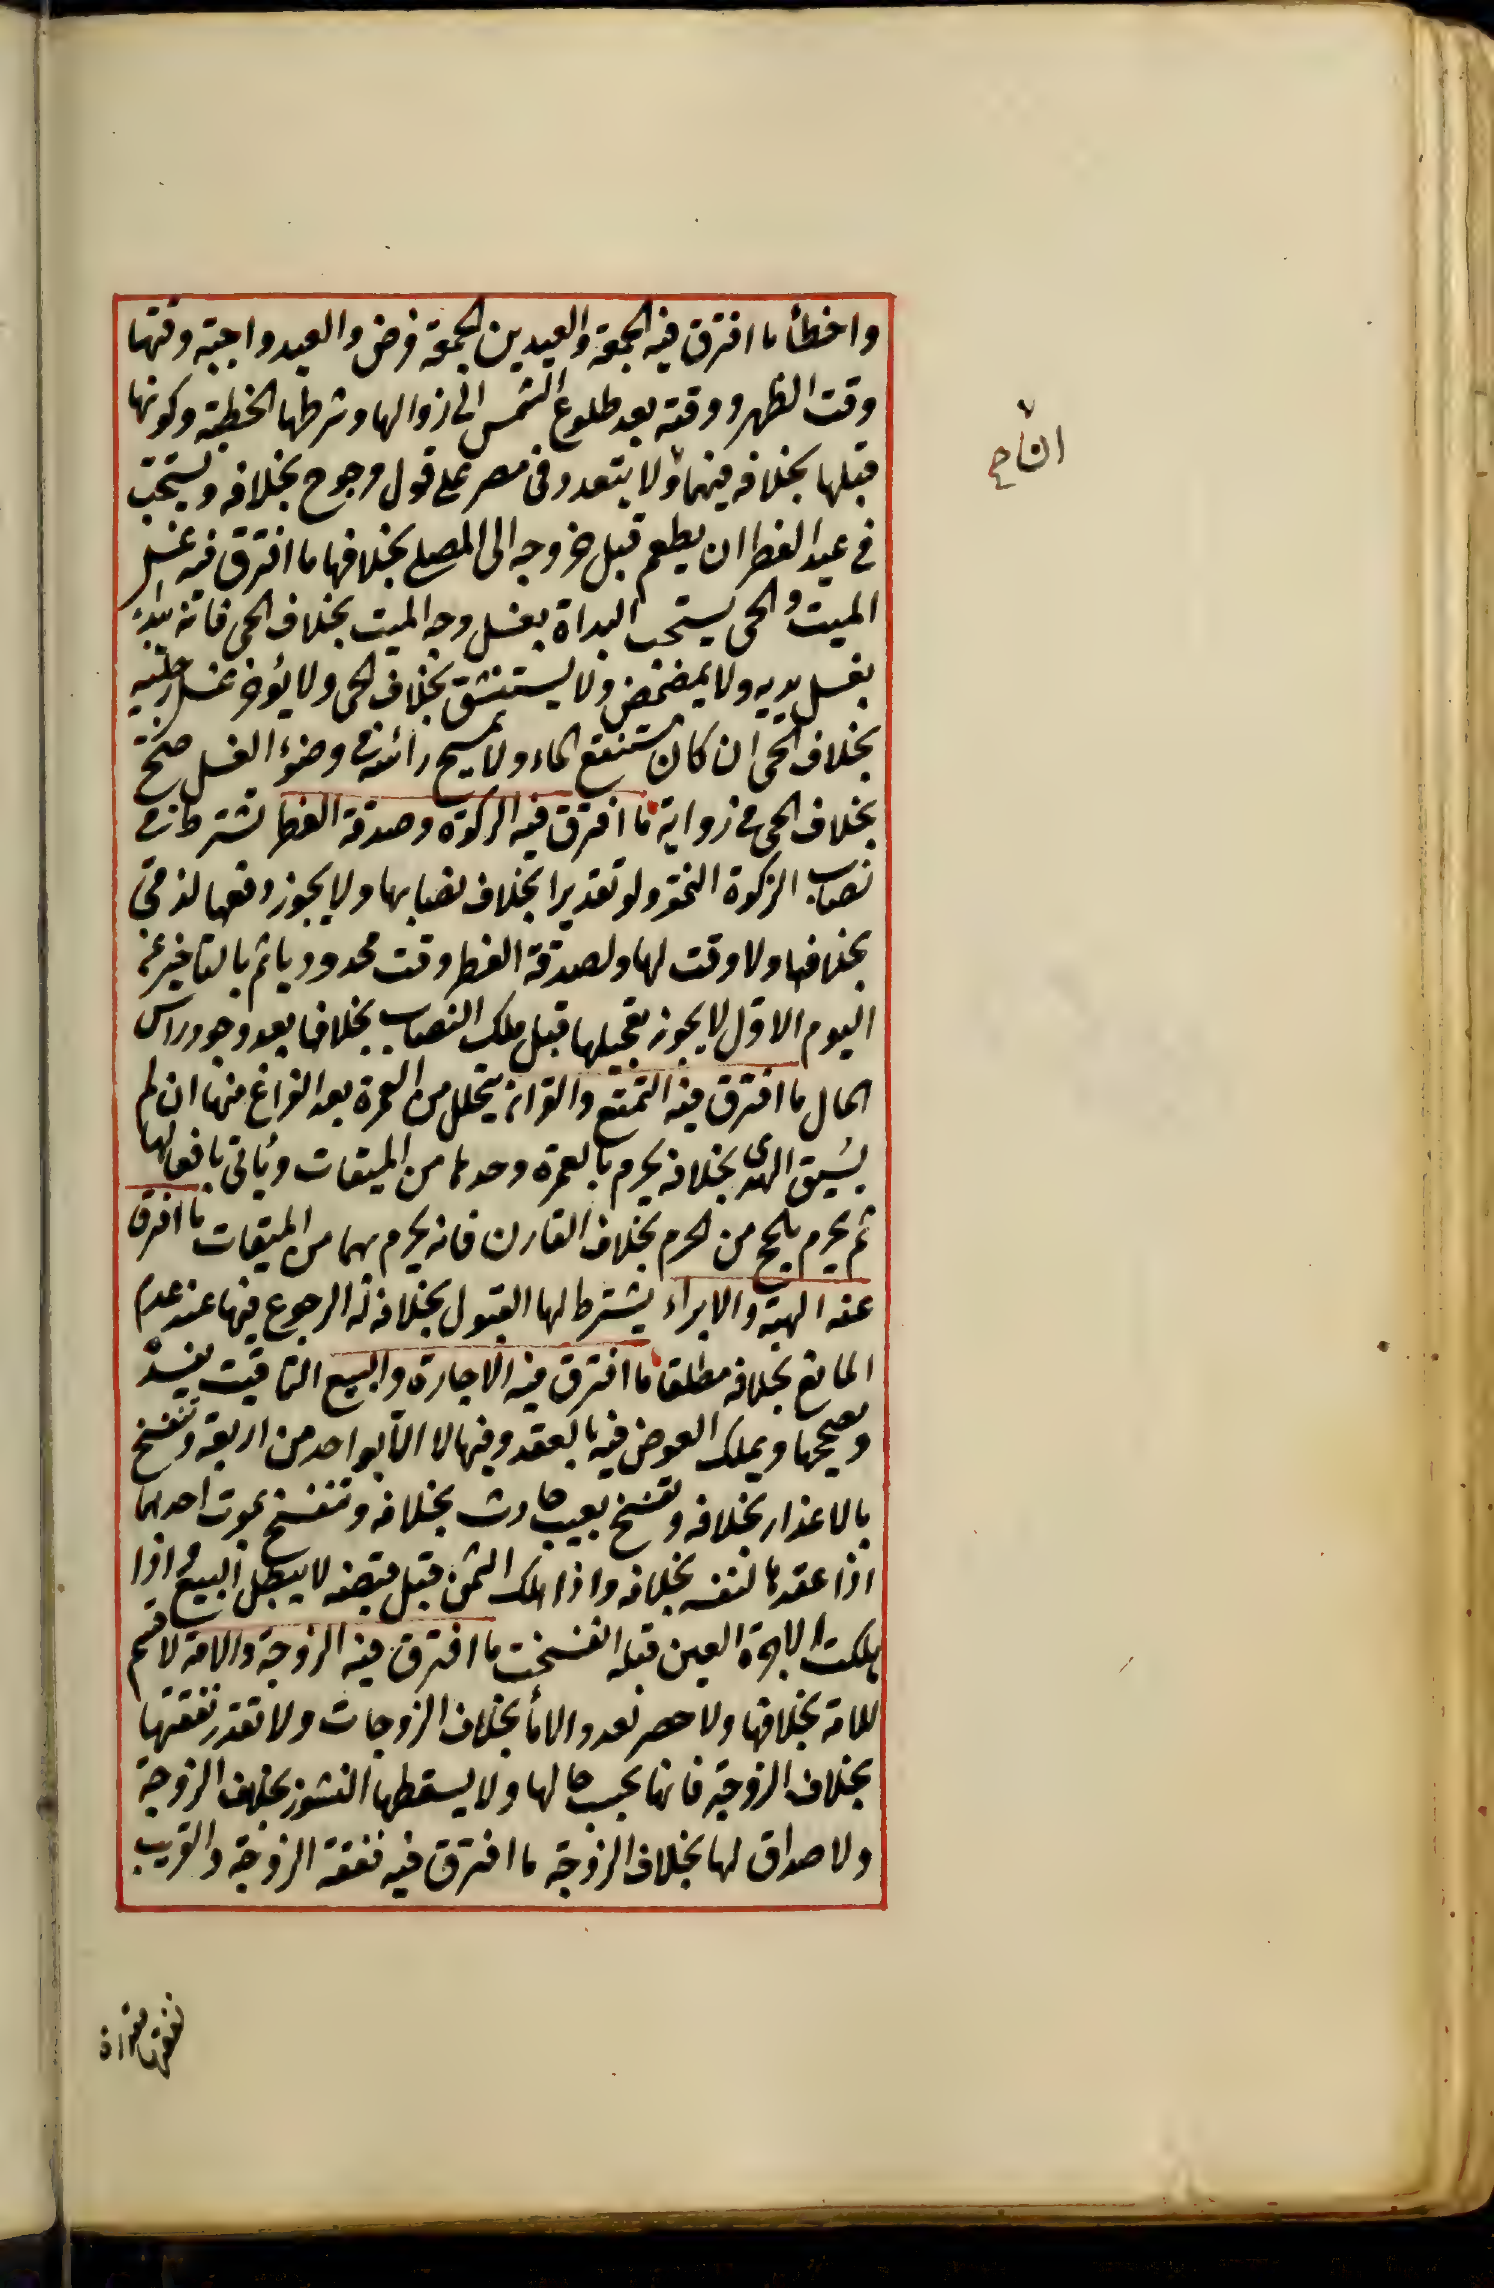 واخطأ ما افترق فيه الجمعة والعيدين الجمعة فرض والعيد واجبة وقتها
وقت الظهر ووقته بعد طلوع الشمس الى زوالها وشرطها الخطبة وكونها
قبلها بخلافه فيهما ولا يتعدد فى مصر على قول مرجوح بخلافه ويستحب
فى عيد الفطر ان يطعم قبل خروجه الى المصلى بخلافها ما افترق فيه غسل
الميت والحى يستحب البداة بغسل وجه الميت بخلاف الحى فانه يبدأ
بغسل يديه ولا يمضمض ولا يستنشق بخلاف الحى ولا يؤخر غسل رجليه
بخلاف الحى ان كان مستنقع الماء ولا يمسح راسه فى وضوء الغسل صح
بخلاف الحى فى رواية ما افترق فيه الزكوة وصدقة الفطر تشترط فى
نصاب الزكوة النمو ولو تقديرا بخلاف نصابها ولا يجوز دفعها لذمى
بخلافها ولا وقت لها ولصدقة الفطر وقت محدود ياثم بالتاخير عن
اليوم الاول لا يجوز تعجيلها قبل ملك النصاب بخلافها بعد وجود راس
المال ما افترق فيه التمتع والقران يتحلل من العمرة بعد الفراغ منها ان لم
يسق الهدى بخلافه يحرم بالعمرة وحدها من الميقات وياتى بافعالها
ثم يحرم بالحج من الحرم بخلاف القارن فانه يحرم بهما من الميقات ما افترق
عنه الهبة والابراء يشترط لها القبول بخلافه له الرجوع فيها عند عدم
المانع بخلافه مطلقا ما افترق فيه الاجارة والبيع التاقيت يفسده
ويصححها ويملك العوض فيه بالعقد وفيها لا الا بواحد من اربعة وتنفسخ
بالاعذار بخلافه وتفسخ بعيب حادث بخلافه وتنفسخ بموت احدهما
اذا عقدها لنفسه بخلافه واذا هلك الثمن قبل قبضه لا يبطل البيع واذا
هلكت الاجرة العين قبله انفسخت ما افترق فيه الزوجة والامة لا قسم
للامة بخلافها ولا حصر لعدد الاماء بخلاف الزوجات ولا تقدر نفقتها
بخلاف الزوجة فانها بحسب حالها ولا يسقطها النشوز بخلاف الزوجة
ولا صداق لها بخلاف الزوجة ما افترق فيه نفقة الزوجة والقريب
نفقتها مقدرة